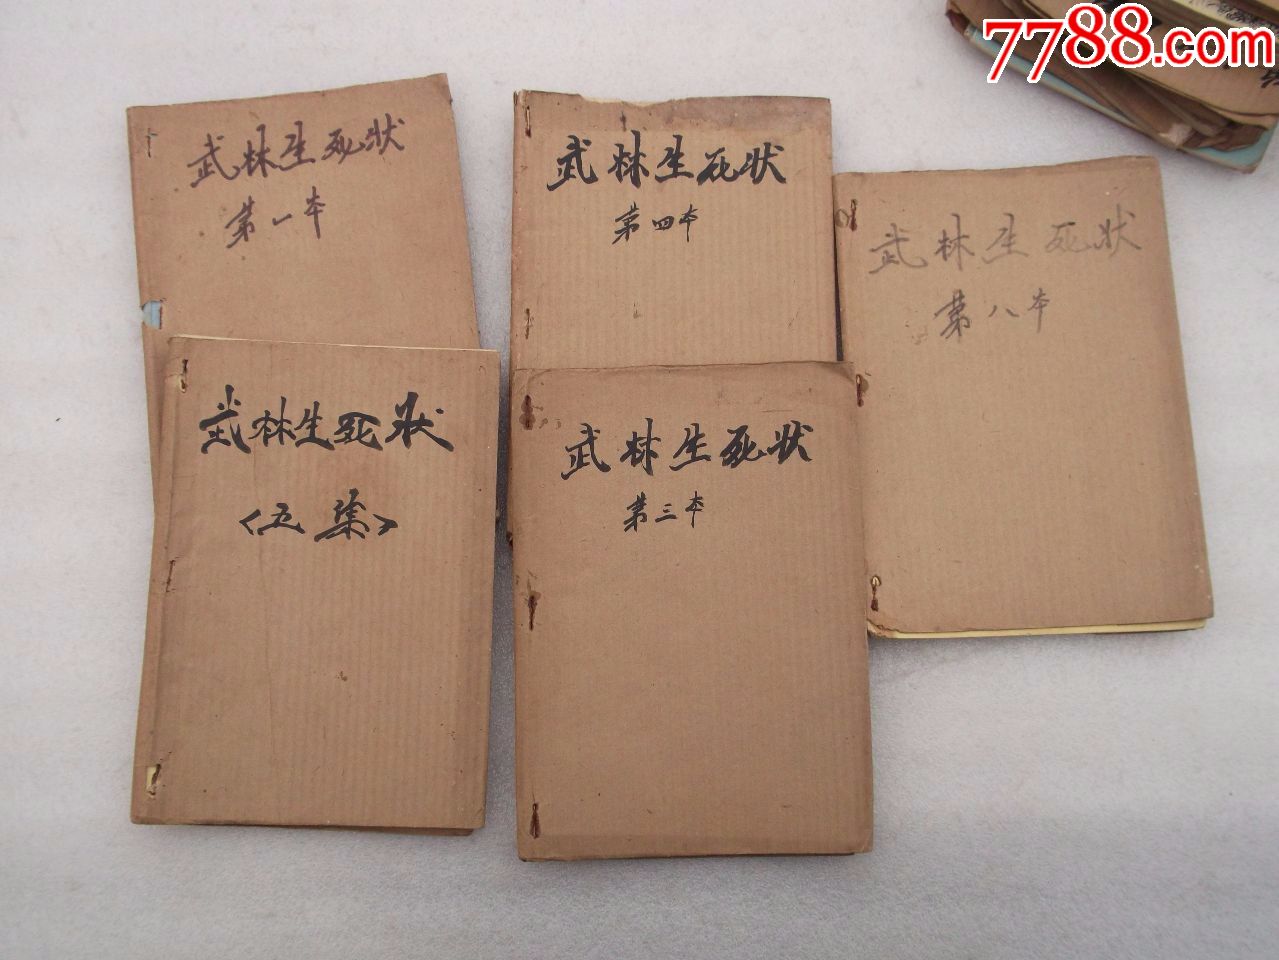 7788.com
武林生死狀
第一本
武林生死狀
第四本
武林生死狀
第八本
武林生死狀
<五集>
武林生死狀
第三本